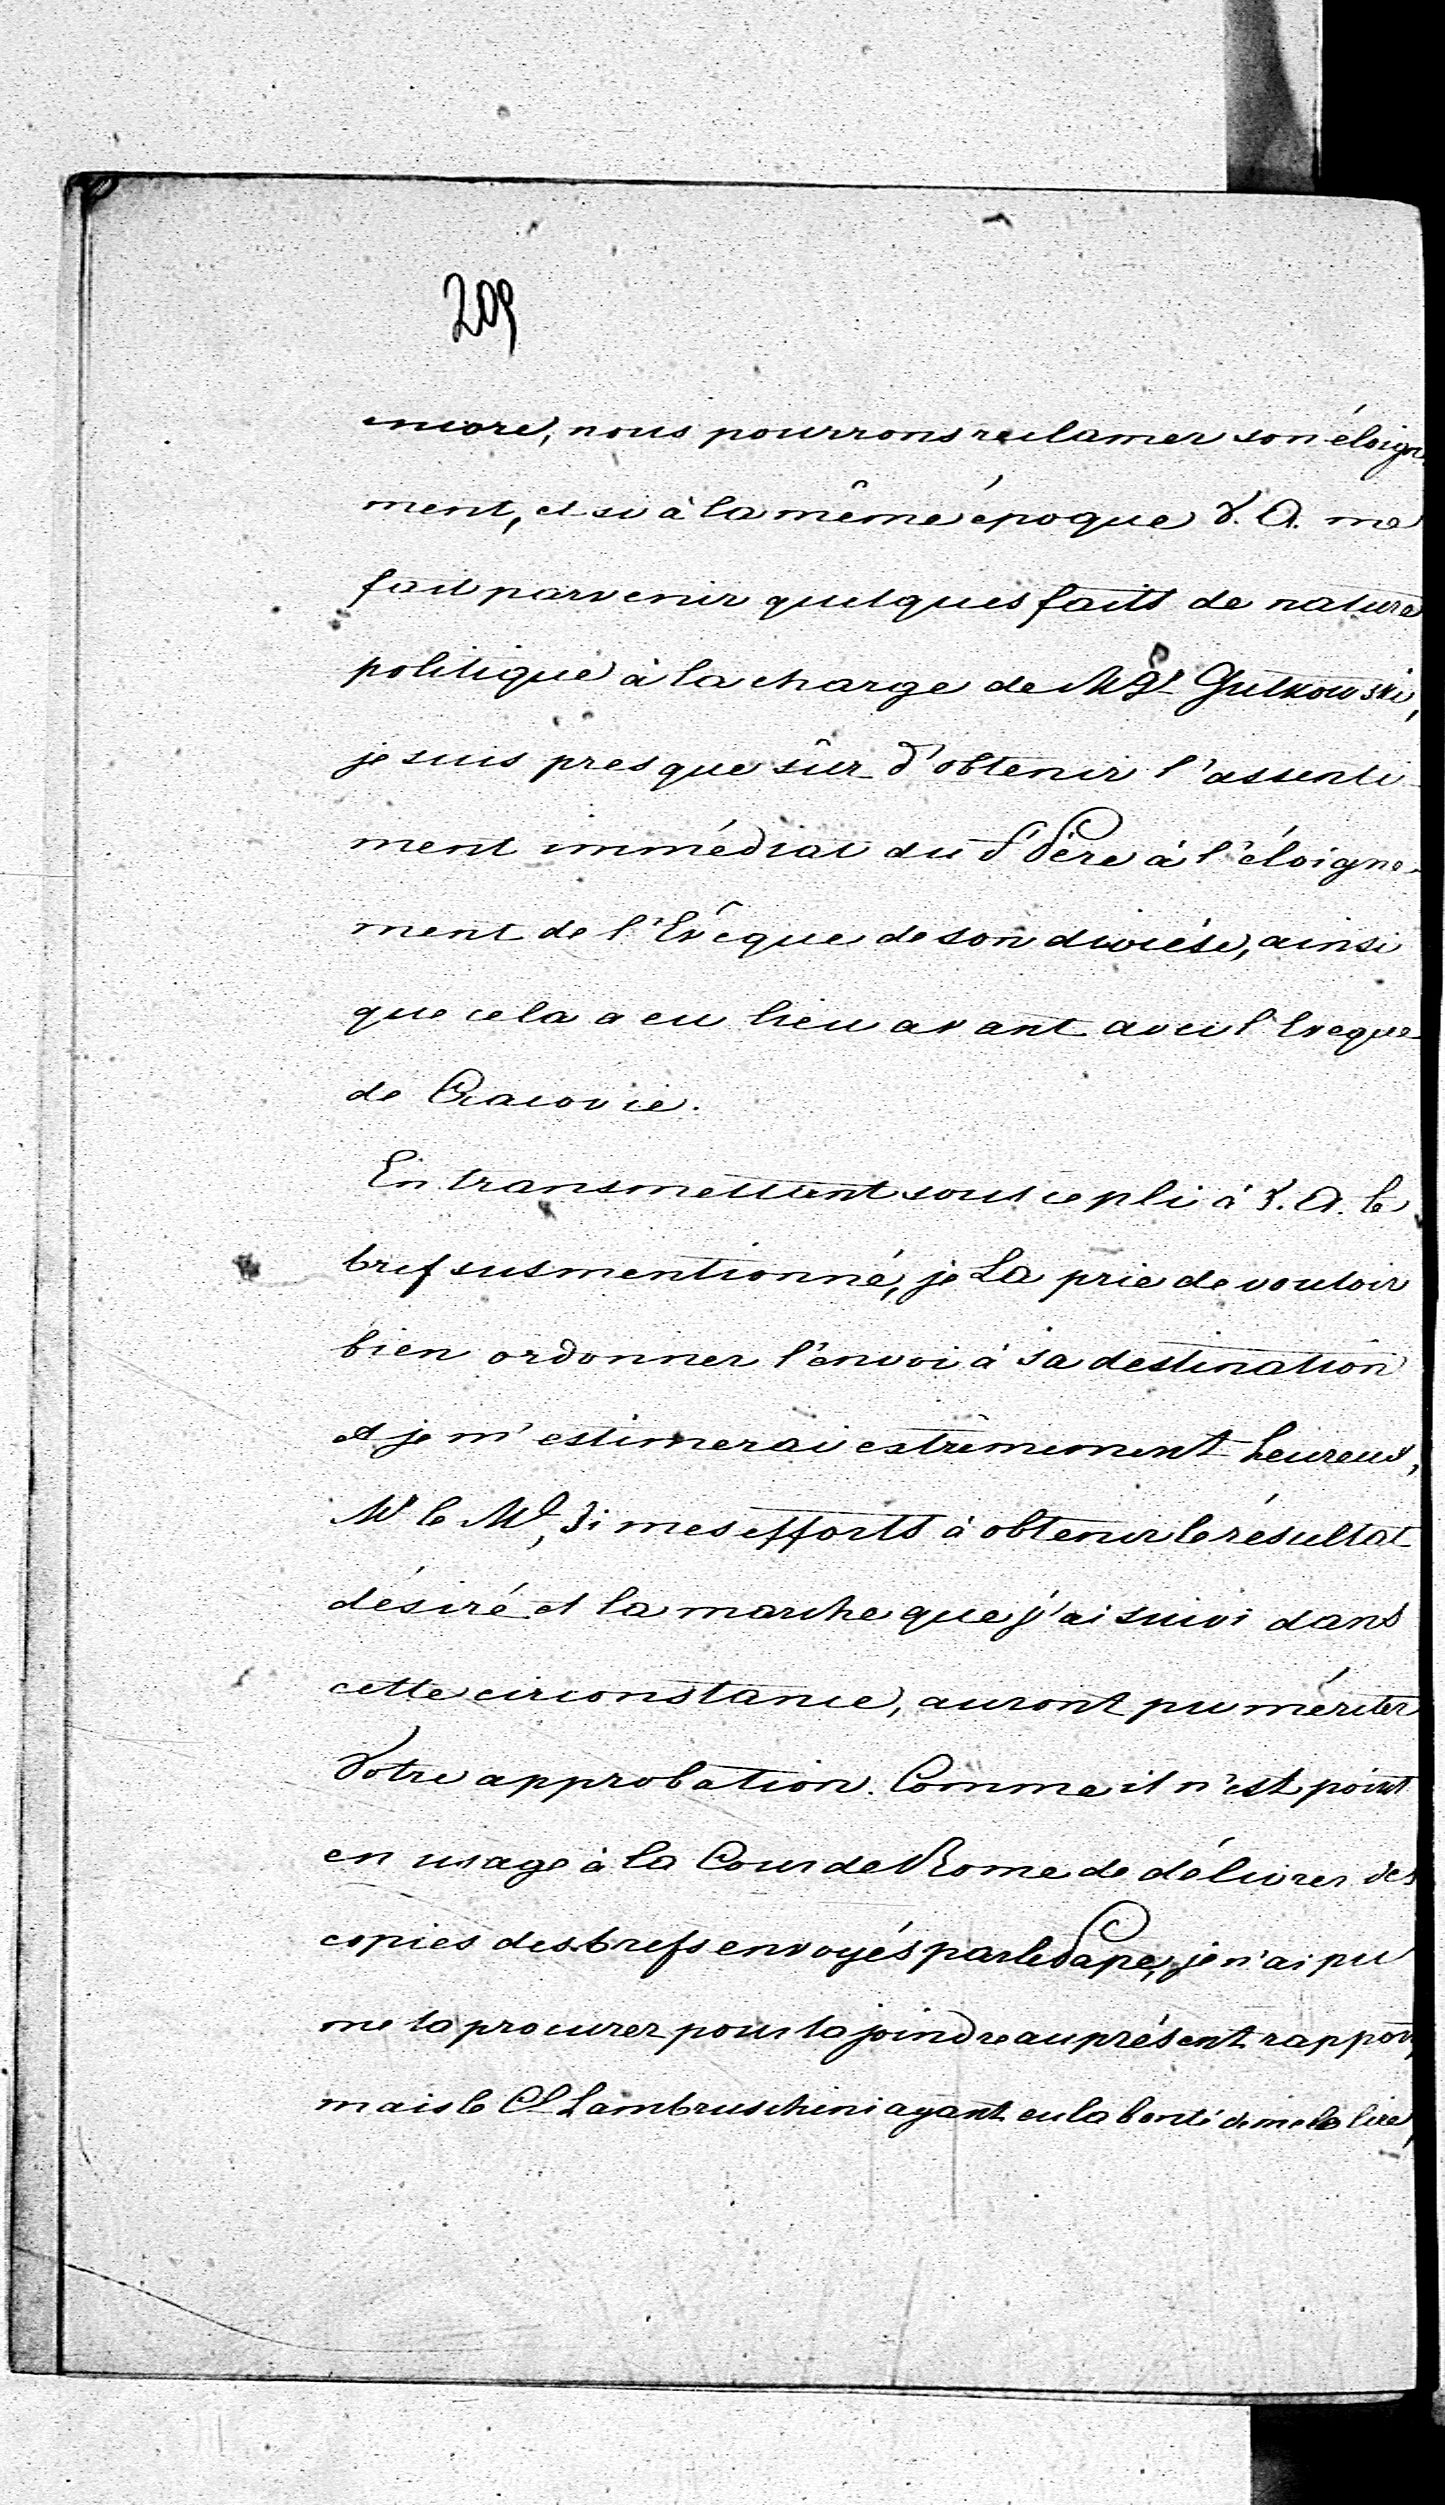 209
encore, nous pourrons reclamer son éloigne
ment, et si à la même époque V. A. me
fait parvenir quelques faits de nature
politique à la charge de Mgr Gutkowski,
je suis presque sûr d'obtenir l'assenti-
ment immédiat du St Père à l'éloigne-
ment de l'Evêque de son diocése, ainsi
que cela a eu lieu avant avec l'Eveque
de Cracovie.
En transmettant sous ce pli à V. A. le
bref susmentionné, je La prie de vouloir
bien ordonner l'envoi à sa destination
et je m'estimerai extrêmement heureux,
Mr le Ml, si mes efforts à obtenir le résultat
désiré et la marche que j'ai suivi dans
cette circonstance, auront pu mériter
Votre approbation. Comme il n'est point
en usage à la Cour de Rome de délivrer des
copies des brefs envoyés par le Pape, je n'ai pu
me la procurer pour la joindre au présent rapport
mais le Cl Lambruschini ayant eu la bonté de me le lire,